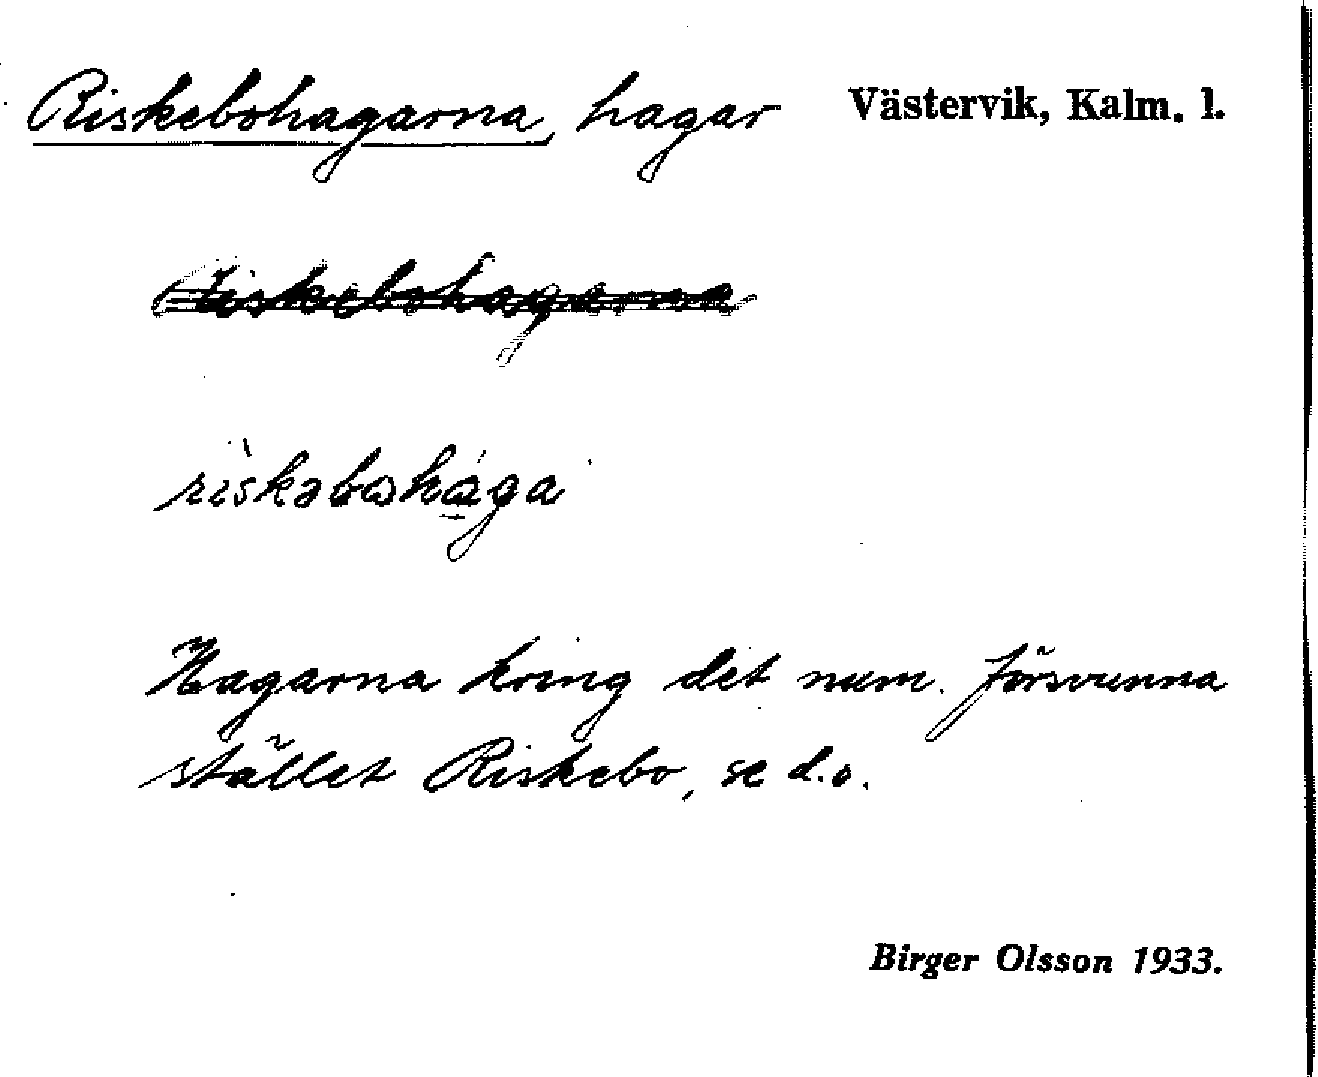 Riskebohagarna, hagar Västervik, Kalm. l.
Riskebohagarna
rìskəbohága
Hagarna kring det num. försvunna
stället Riskebo, se d.o.
Birger Olsson 1933.